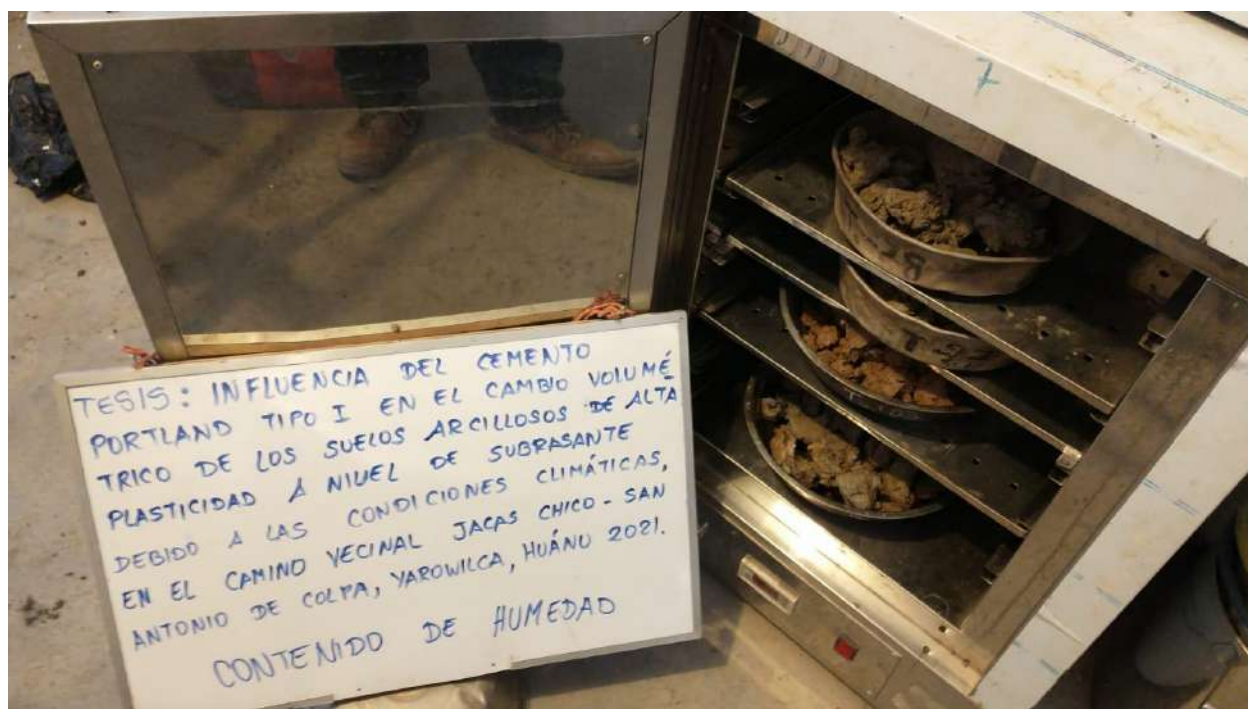 TESIS: INFLUENCIA DEL CEMENTO
PORTLAND TIPO I EN EL CAMBIO VOLUMÉ
TRICO DE LOS SUELOS ARCILLOSOS DE ALTA
PLASTICIDAD A NIVEL DE SUBRASANTE
DEBIDO A LAS CONDICIONES CLIMÁTICAS,
EN EL CAMINO VECINAL JACAS CHICO - SAN
ANTONIO DE COLPA, YAROWILCA, HUÁNU 2021.
CONTENIDO DE HUMEDAD